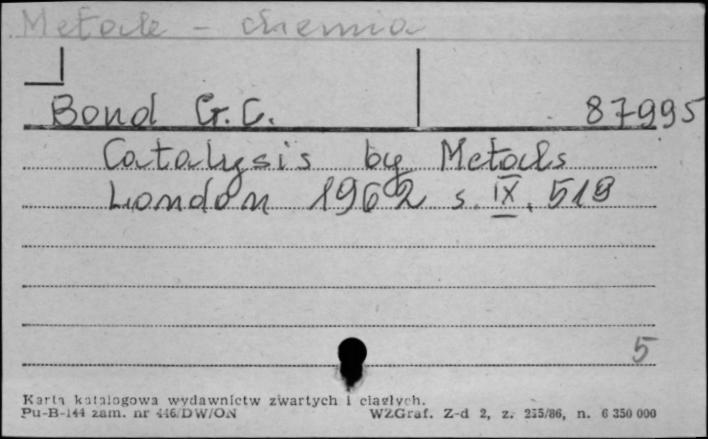 Metale - chemia
Bond G.C. 87995
Catalysis by Metals
London 1962 s. IX, 519
5
Karta katalogowa wydawnictw zwartych i ciągłych.
Pu-B-144 zam. nr 446/DW/ON WZGraf. Z-d 2, z. 255/86, n. 6 350 000